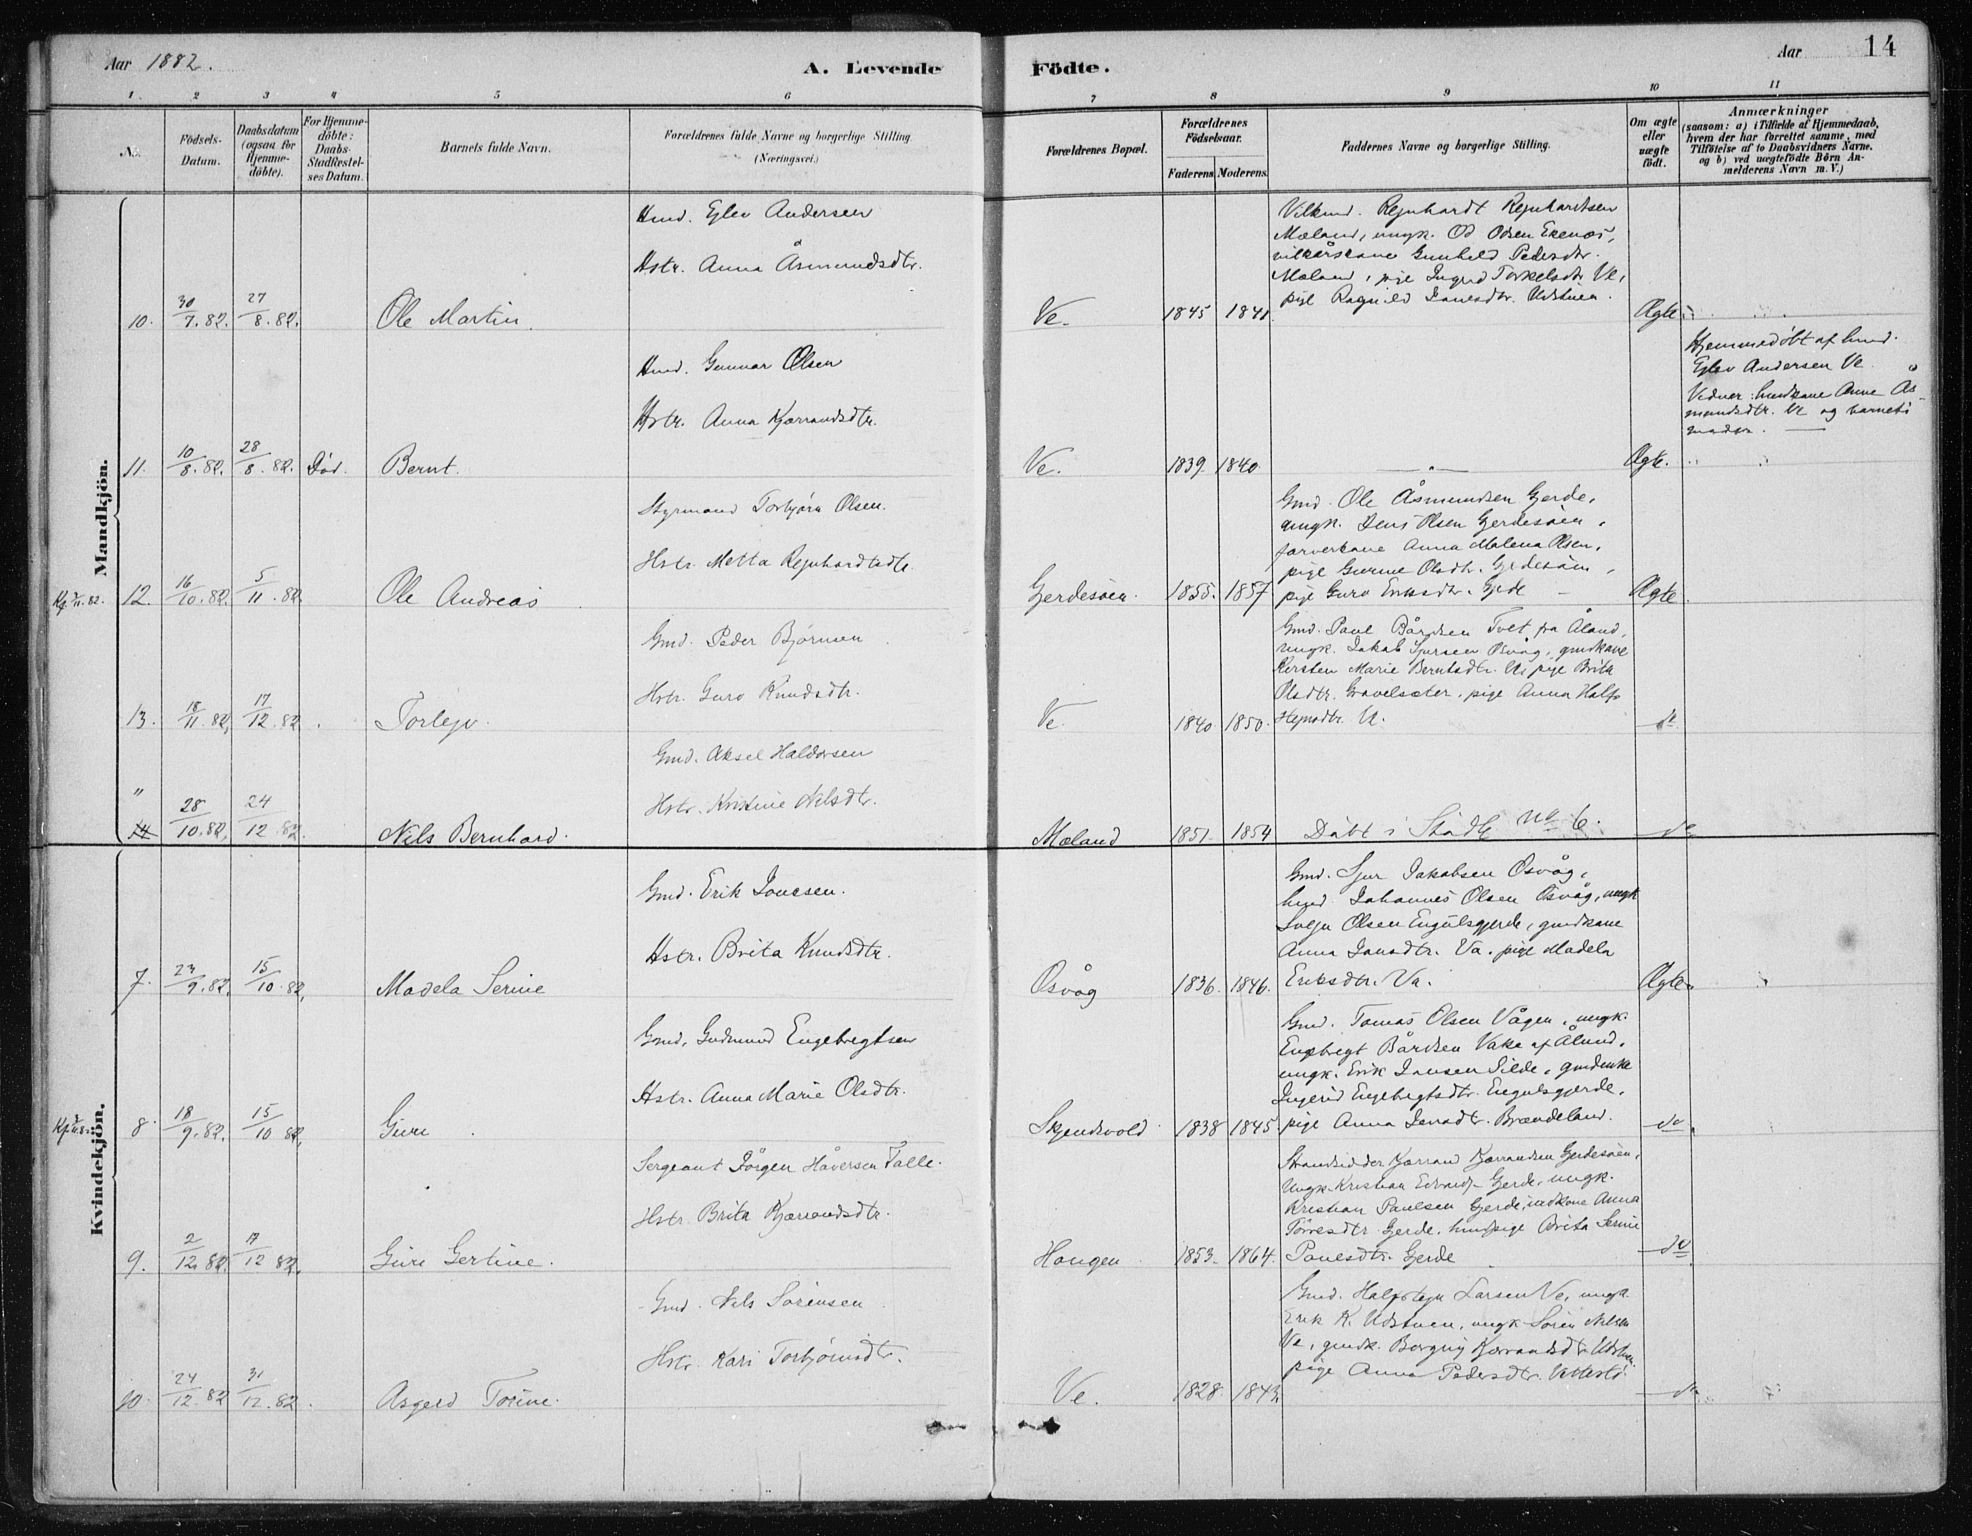 Aar 1882.
A. Levende
Födte.
Aar
14
1. 2 3 4 5 6 7 8 9 10 11
No.
Födsels-
Datum.
Daabsdatum
(ogsaa for
Hjemme-
döbte).
For Hjemme-
döbte:
Daabs-
Stadfæstel-
ses Datum.
Barnets fulde Navn.
Forældrenes fulde Navne og borgerlige Stilling
(Næringsvei.)
Forældrenes Bopæl.
Forældrenes
Födselsaar.
Faderens. Moderens.
Faddernes Navne og borgerlige Stilling.
Om ægte
eller
uægte
födt.
Anmærkninger
(saasom: a) i Tilfælde af Hjemmedaab,
hvem der har forrettet samme, med
Tilföielse af to Daabsvidners Navne.
og b) ved uægtefödte Börn An-
melderens Navn m. V.)
Mandkjön.
10. 30/7.82. 27/8.82. Ole Martin.
Hmd. Eylev Andersen
Hstr. Anna Åsmundsdtr.
Ve. 1845 1841.
Vilkmd. Reynhardt Reynhardtsen
Mæland, ungk. Od Odsen Ekenæs,
vilkårskone Gunhild Pedersdtr.
Mæland, pige Ingrid Torkelsdtr. Ve,
pige Ragnild Jonesdtr. Udstuen.
Ægte
11. 10/8.82. 28/8.82. Död. Bernt.
Hmd. Gunnar Olsen
Hstr. Anna Kjærrandsdtr.
Ve. 1839 1840
Ægte.
Hjemmedöbt af hmd.
Eylev Andersen Ve
Vidner: hmdkone Anna Ås-
mundsdtr. Ve og barnets
moder.
12. 16/10.82. 5/11.82. Ole Andreas
Styrmand Torbjörn Olsen.
Hstr. Metta Reynhardtsdtr.
Gjerdesöen. 1855. 1857
Gmd. Ole Åsmundsen Gjerde,
ungk. Jens Olsen Gjerdesöen,
farverkone Anna Malena Olsen,
pige Gurine Olsdtr. Gjerdesöen,
pige Guro Eriksdtr. Gjerde
Ægte.
13. 18/11.82. 17/12.82. Torleiv.
Gmd. Peder Björnsen
Hstr. Guro Knudsdtr.
Ve. 1840 1850.
Gmd. Paul Bårdsen Tvet fra Åland,
ungk. Jakob Sjursen Osvåg, gmdkone
Kersten Marie Berntsdtr. Ve, pige Brita
Olsdtr. Gravelsæter, pige Anna Halfs
do
" 14 28/10.82. 24/12.82. Nils Bernhard.
Gmd. Aksel Haldorsen
Hstr. Kristine Nilsdtr.
Mæland 1851. 1854
Döbt i Skådt No 6.
do
Kvindekjön.
7. 23/9.82. 15/10.82. Madela Serine
Gmd. Erik Jonesen.
Hstr. Brita Knudsdtr.
Osvåg 1836. 1846.
Gmd. Sjur Jakobsen Osvåg,
hmd Johannes Olsen Osvåg, ungk
Salju Olsen Engulsgjerde, gmdkone
Anna Jonsdtr. Va. pige Madela
Eriksdtr. Va.
Ægte.
8. 18/9.82. 15/10.82. Guri
Gmd. Gudmund Engebregtsen
Hstr. Anna Marie Olsdtr.
Skjendsvold 1838 1845.
Gmd. Tomas Olsen Vågen, ungk.
Engebregt Bårdsen Vaka af Ålund,
ungk. Erik Jansen Silde, gmdenke
Ingerid Engebregtsdtr. Engulsgjerde,
pige Anna Jensdtr. Brændeland.
do
9. 2/12.82. 17/12 82. Guri Gertine.
Sergeant Jörgen Håversen Falle.
Hstr. Brita Kjærrandsdtr.
Haugen 1853. 1864.
Strandsidder Kjærrand Kjærrandsen Gjerdesöen,
Ungk. Kristian Edvards. Gjerde, ungk.
Kristian Paulsen Gjerde, indkone Anna
Törresdtr Gjerde, hmdspige Brita Serine
Paulsdtr. Gjerde
do
10. 24/12.82 31/12.82. Asgerd Torine.
Gmd. Nils Sörensen
Hstr. Kari Torbjörnsdtr.
Ve. 1828. 1843.
Gmd. Halfsteyn Larsen Ve, ungk.
Erik K. Udstuen, ungk Sören Nilsen
Ve, gmdk. Borgny Kjærrandsdtr Udstuen
pige Anna Pedersdtr.
do